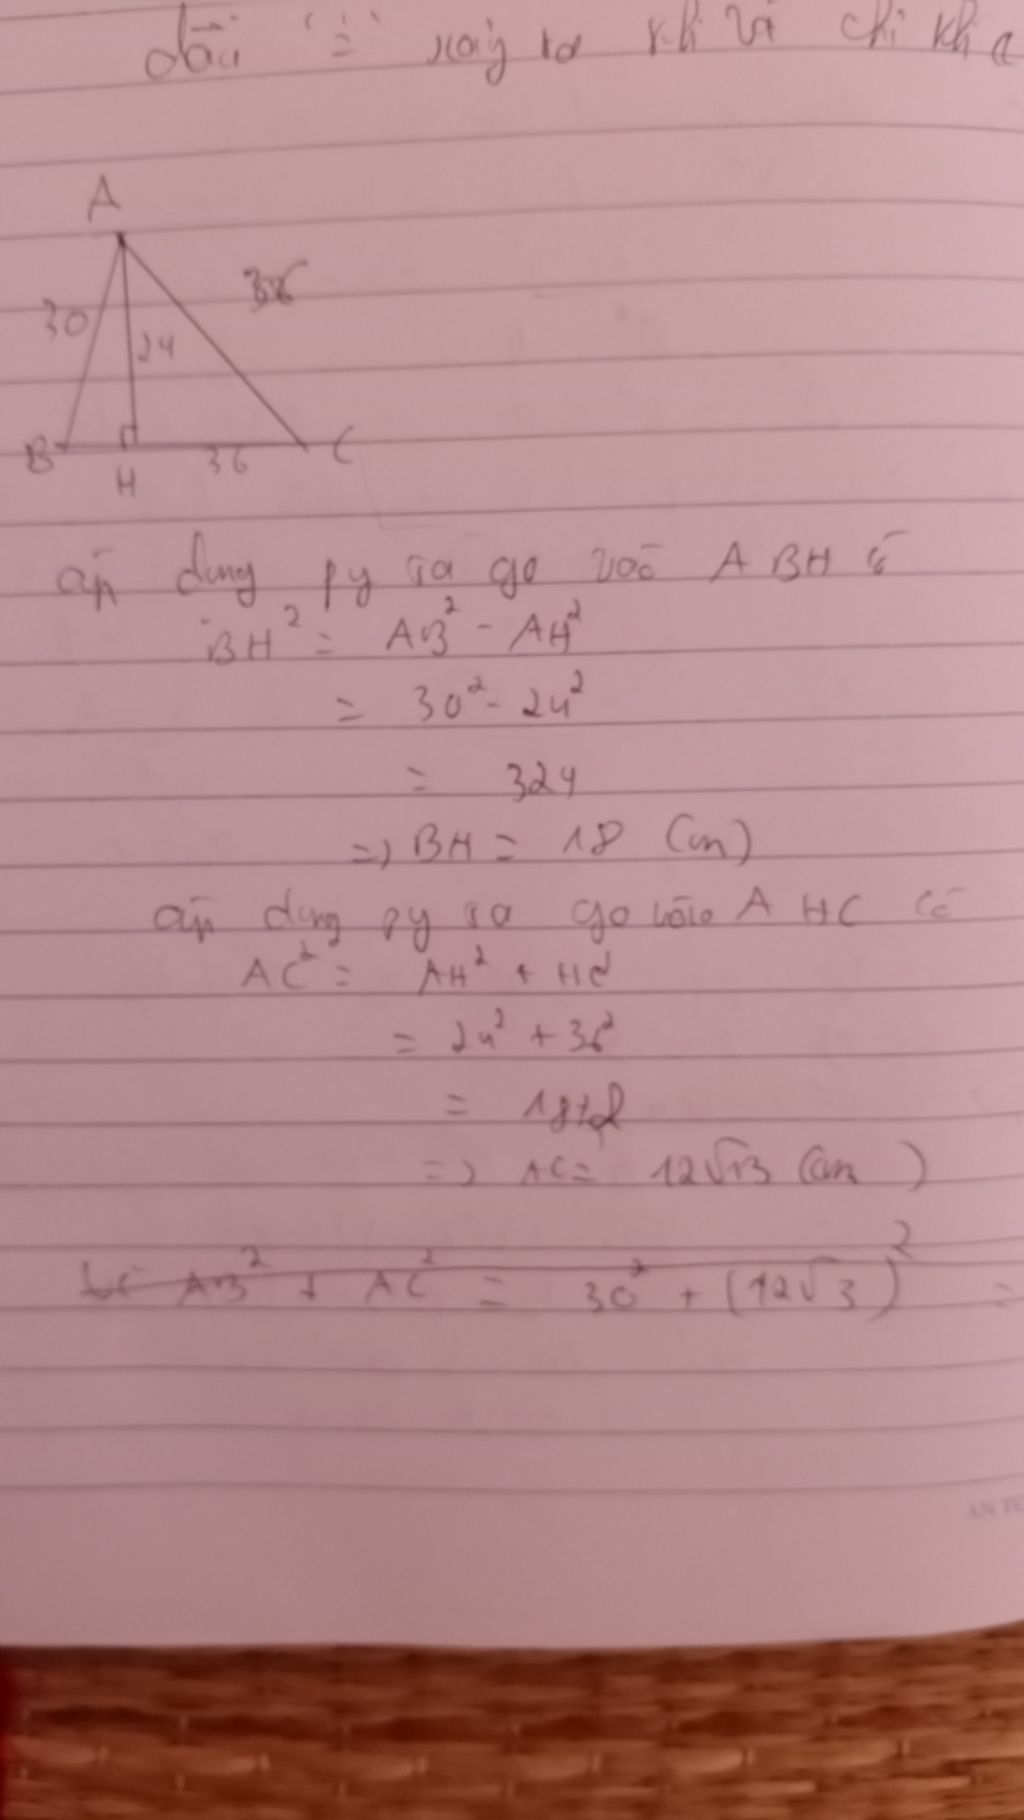 dấu "=" xảy ra khi và chỉ khi a
A
30
24
B
H
36
C
áp dụng py ta go vào ABH có
BH² = AB² - AH²
= 30² - 24²
= 324
=> BH = 18 (cm)
áp dụng py ta go vào AHC có
AC² = AH² + HC²
= 24² + 36²
=
=> AC = 12√13 (cm)
AB² + AC² = 30² + (12√3)² =
AN TO